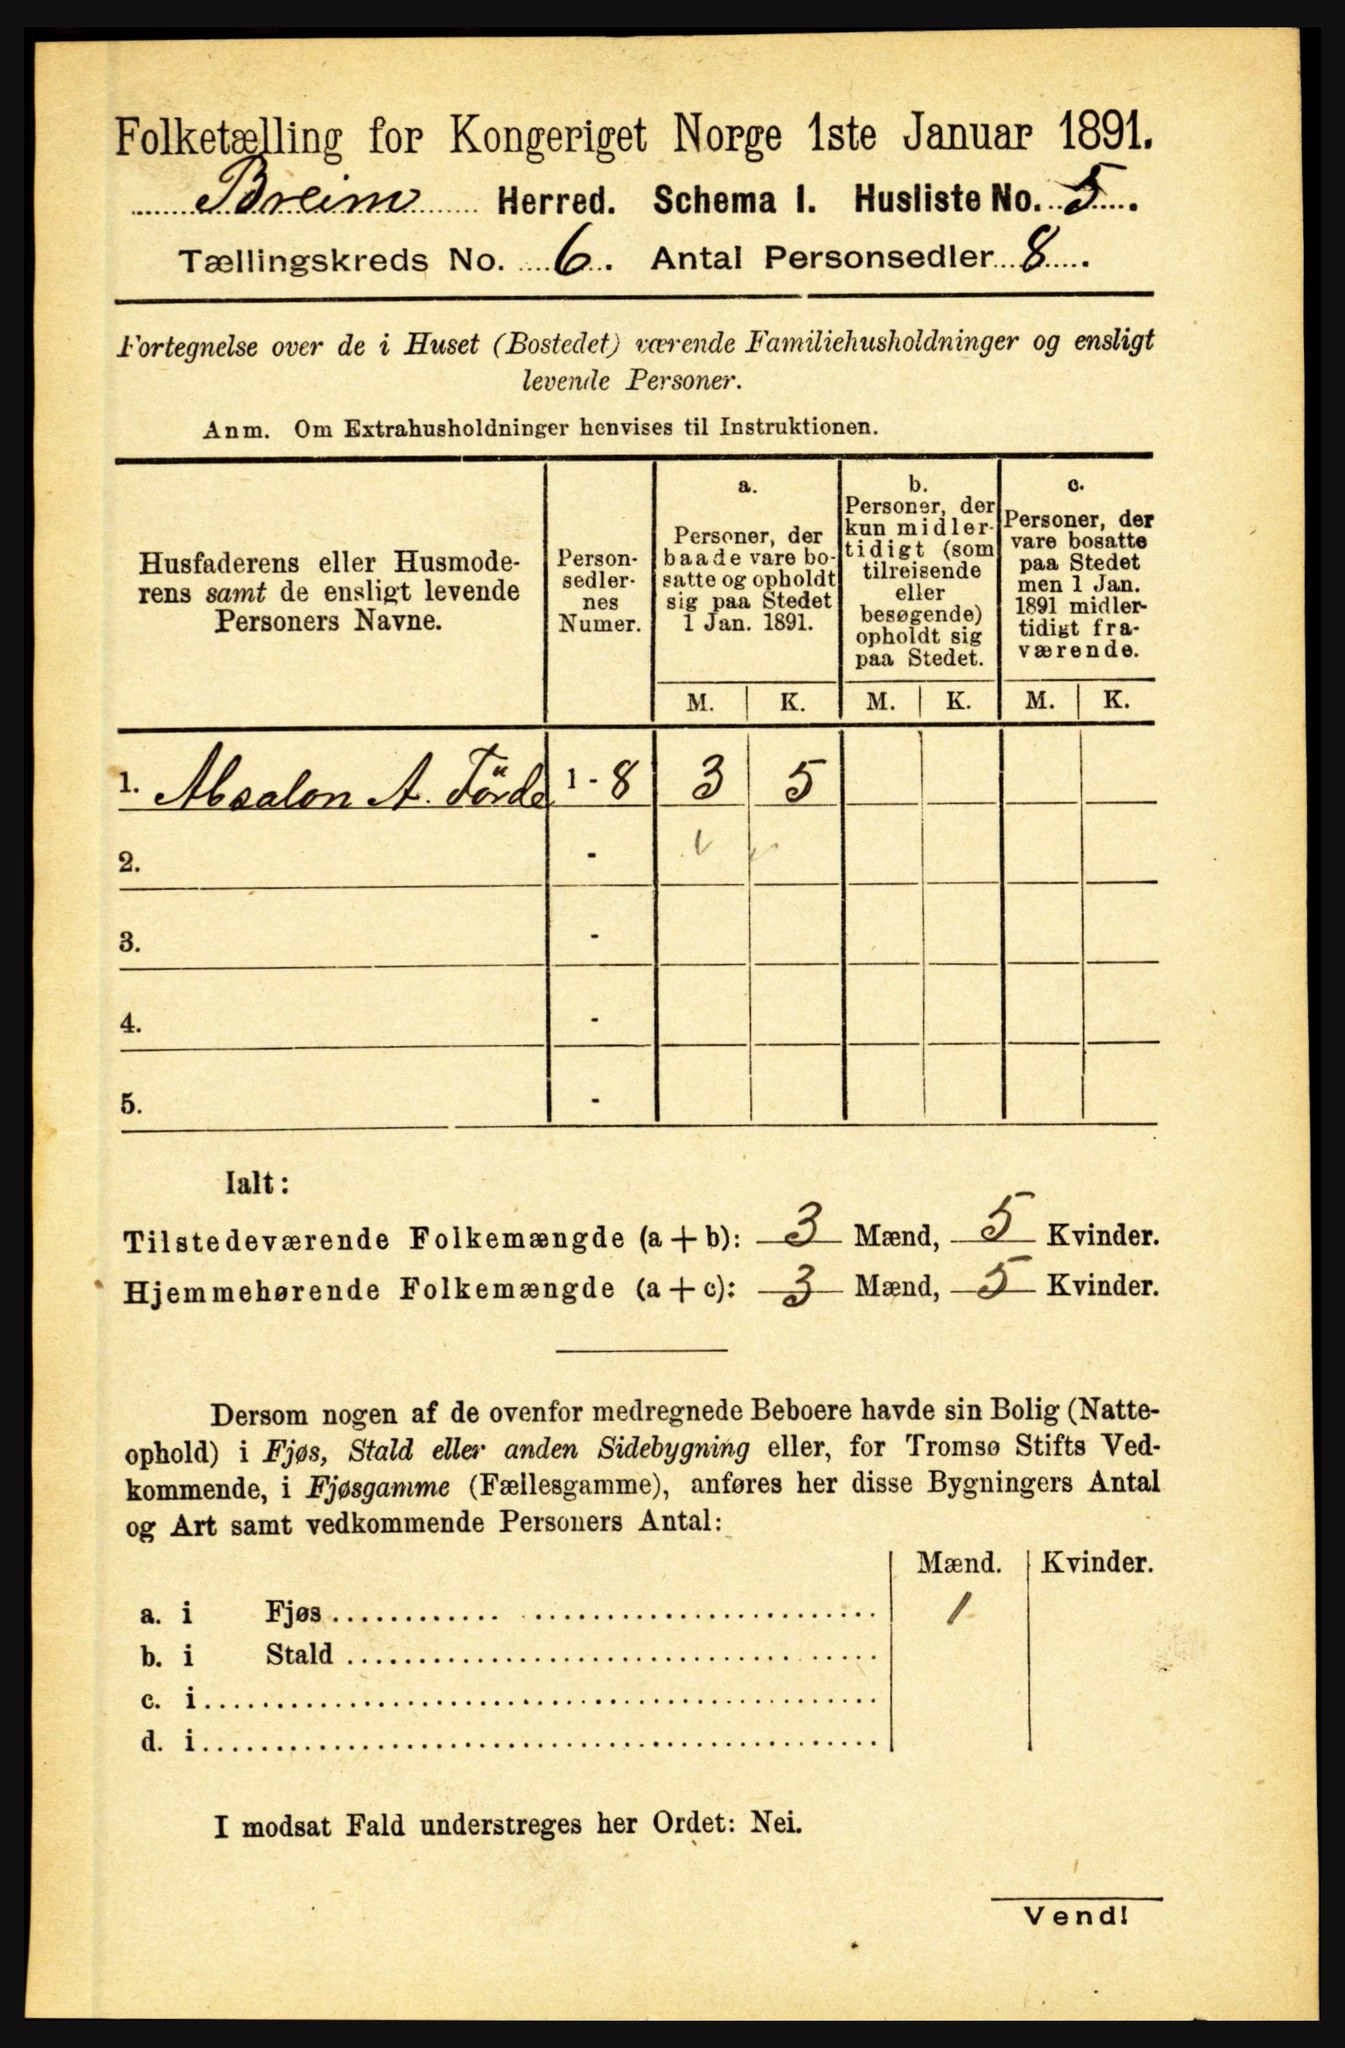 Folketælling for Kongeriget Norge 1ste Januar 1891.
Breim Herred. Schema I. Husliste No. 5.
Tællingskreds No. 6. Antal Personsedler 8.
Fortegnelse over de i Huset (Bostedet) værende Familiehusholdninger og ensligt
levende Personer.
Anm. Om Extrahusholdninger henvises til Instruktionen.
Husfaderens eller Husmode-
rens samt de ensligt levende
Personers Navne.
Person-
sedler-
nes
Numer.
a.
Personer, der
baade vare bo-
satte og opholdt
sig paa Stedet
1 Jan. 1891.
b.
Personer, der
kun midler-
tidigt (som
tilreisende
eller
besøgende)
opholdt sig
paa Stedet.
c.
Personer, der
vare bosatte
paa Stedet
men 1 Jan.
1891 midler-
tidigt fra-
værende.
M. K. M. K. M. K.
1. Absalon A. Förde 1 - 8 3 5
2. -
3. -
4. -
5. -
Ialt:
Tilstedeværende Folkemængde (a + b): 3 Mænd, 5 Kvinder.
Hjemmehørende Folkemængde (a + c): 3 Mænd, 5 Kvinder.
Dersom nogen af de ovenfor medregnede Beboere havde sin Bolig (Natte-
ophold) i Fjøs, Stald eller anden Sidebygning eller, for Tromsø Stifts Ved-
kommende, i Fjøsgamme (Fællesgamme), anføres her disse Bygningers Antal
og Art samt vedkommende Personers Antal:
Mænd. Kvinder.
a. i Fjøs 1
b. i Stald
c. i
d. i
I modsat Fald understreges her Ordet: Nei.
Vend!